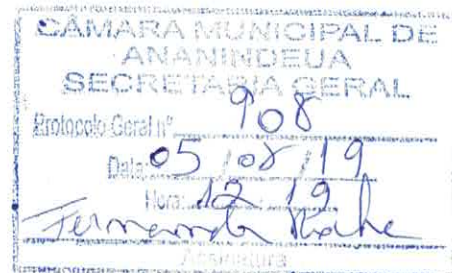 CÂMARA MUNICIPAL DE
ANANINDEUA
SECRETARIA GERAL
Protocolo Geral nº 908
Data: 05 / 08 / 19
Hora: 12 19
Fernanda
Assinatura